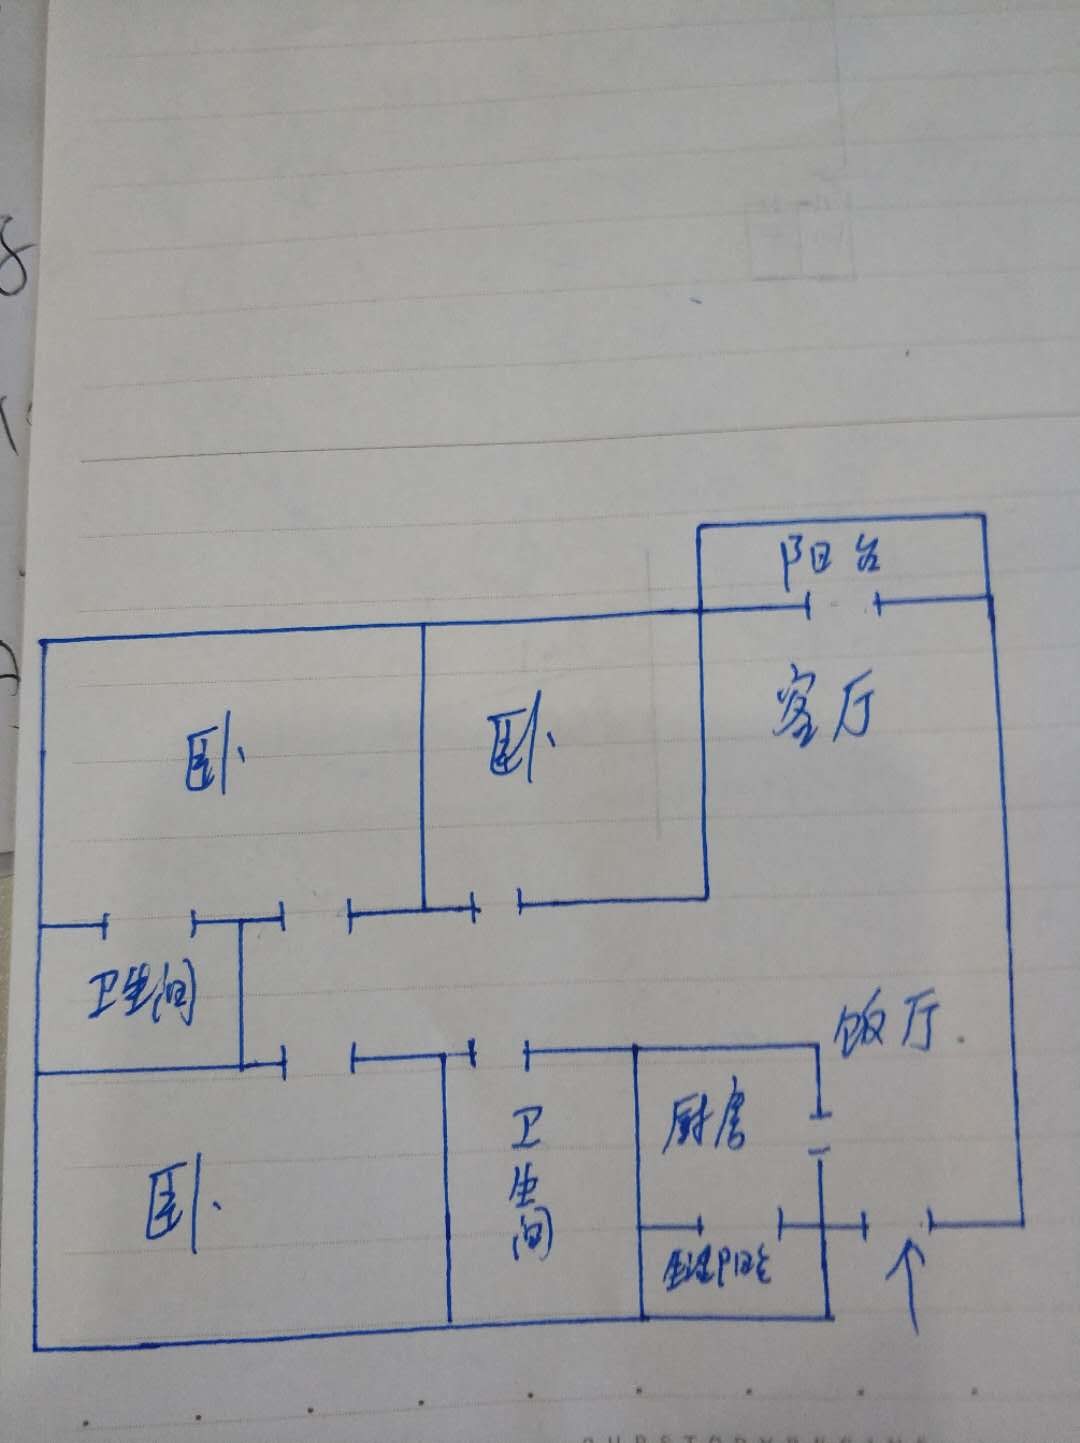 阳台
客厅
卧
卧
卫生间
饭厅
厨房
卫生间
卧
生活阳台